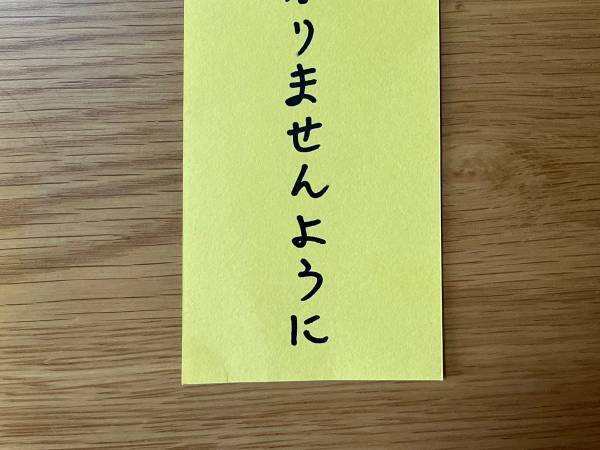 りませんように